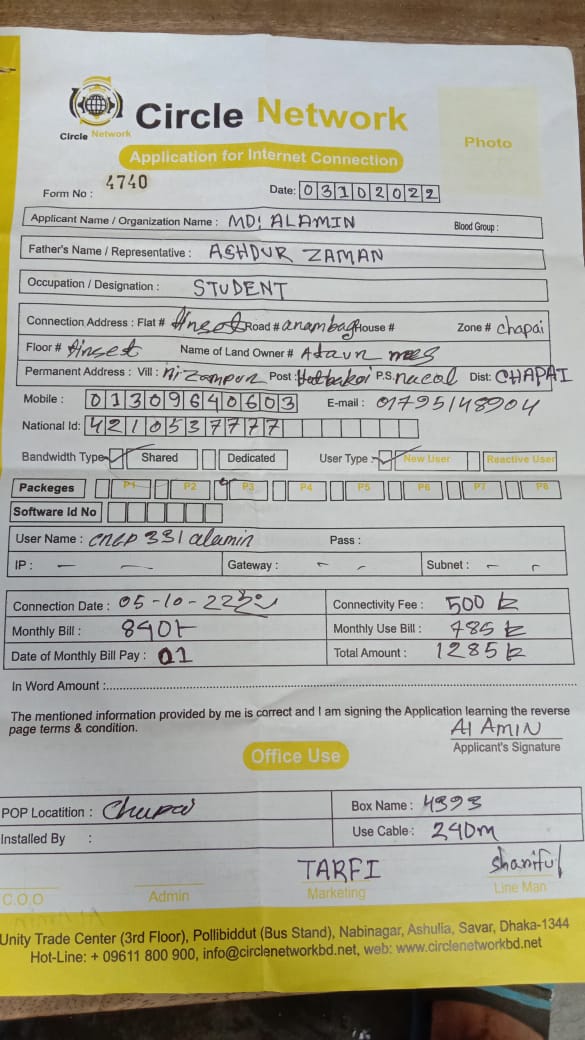 Circle Network
Circle Network
Application for Internet Connection
Photo
Form No : 4740
Date: 03102022
Applicant Name / Organization Name : MD: ALAMIN Blood Group :
Father's Name / Representative : ASHDUR ZAMAN
Occupation / Designation : STUDENT
Connection Address : Flat # Road # anambag House # Zone # chapai
Floor # Name of Land Owner #
Permanent Address : Vill : nizampur Post : P.S. nacol Dist: CHAPAI
Mobile : 01309640603 E-mail : 01795148904
National Id: 4210537777
Bandwidth Type Shared Dedicated User Type : New User Reactive User
Packeges P1 P2 P3 P4 P5 P6 P7 P8
Software Id No
User Name : cncp 331 alamin Pass :
IP : — — Gateway : - - Subnet : - -
Connection Date : 05-10-22 Connectivity Fee : 500
Monthly Bill : 840 Monthly Use Bill : 785
Date of Monthly Bill Pay : 01 Total Amount : 1285
In Word Amount :
The mentioned information provided by me is correct and I am signing the Application learning the reverse
page terms & condition.
Al AMIN
Applicant's Signature
Office Use
POP Locatition : Chupai Box Name : 4393
Installed By : Use Cable : 240m
TARFI shariful
C.O.O Admin Marketing Line Man
Unity Trade Center (3rd Floor), Pollibiddut (Bus Stand), Nabinagar, Ashulia, Savar, Dhaka-1344
Hot-Line: + 09611 800 900, info@circlenetworkbd.net, web: www.circlenetworkbd.net